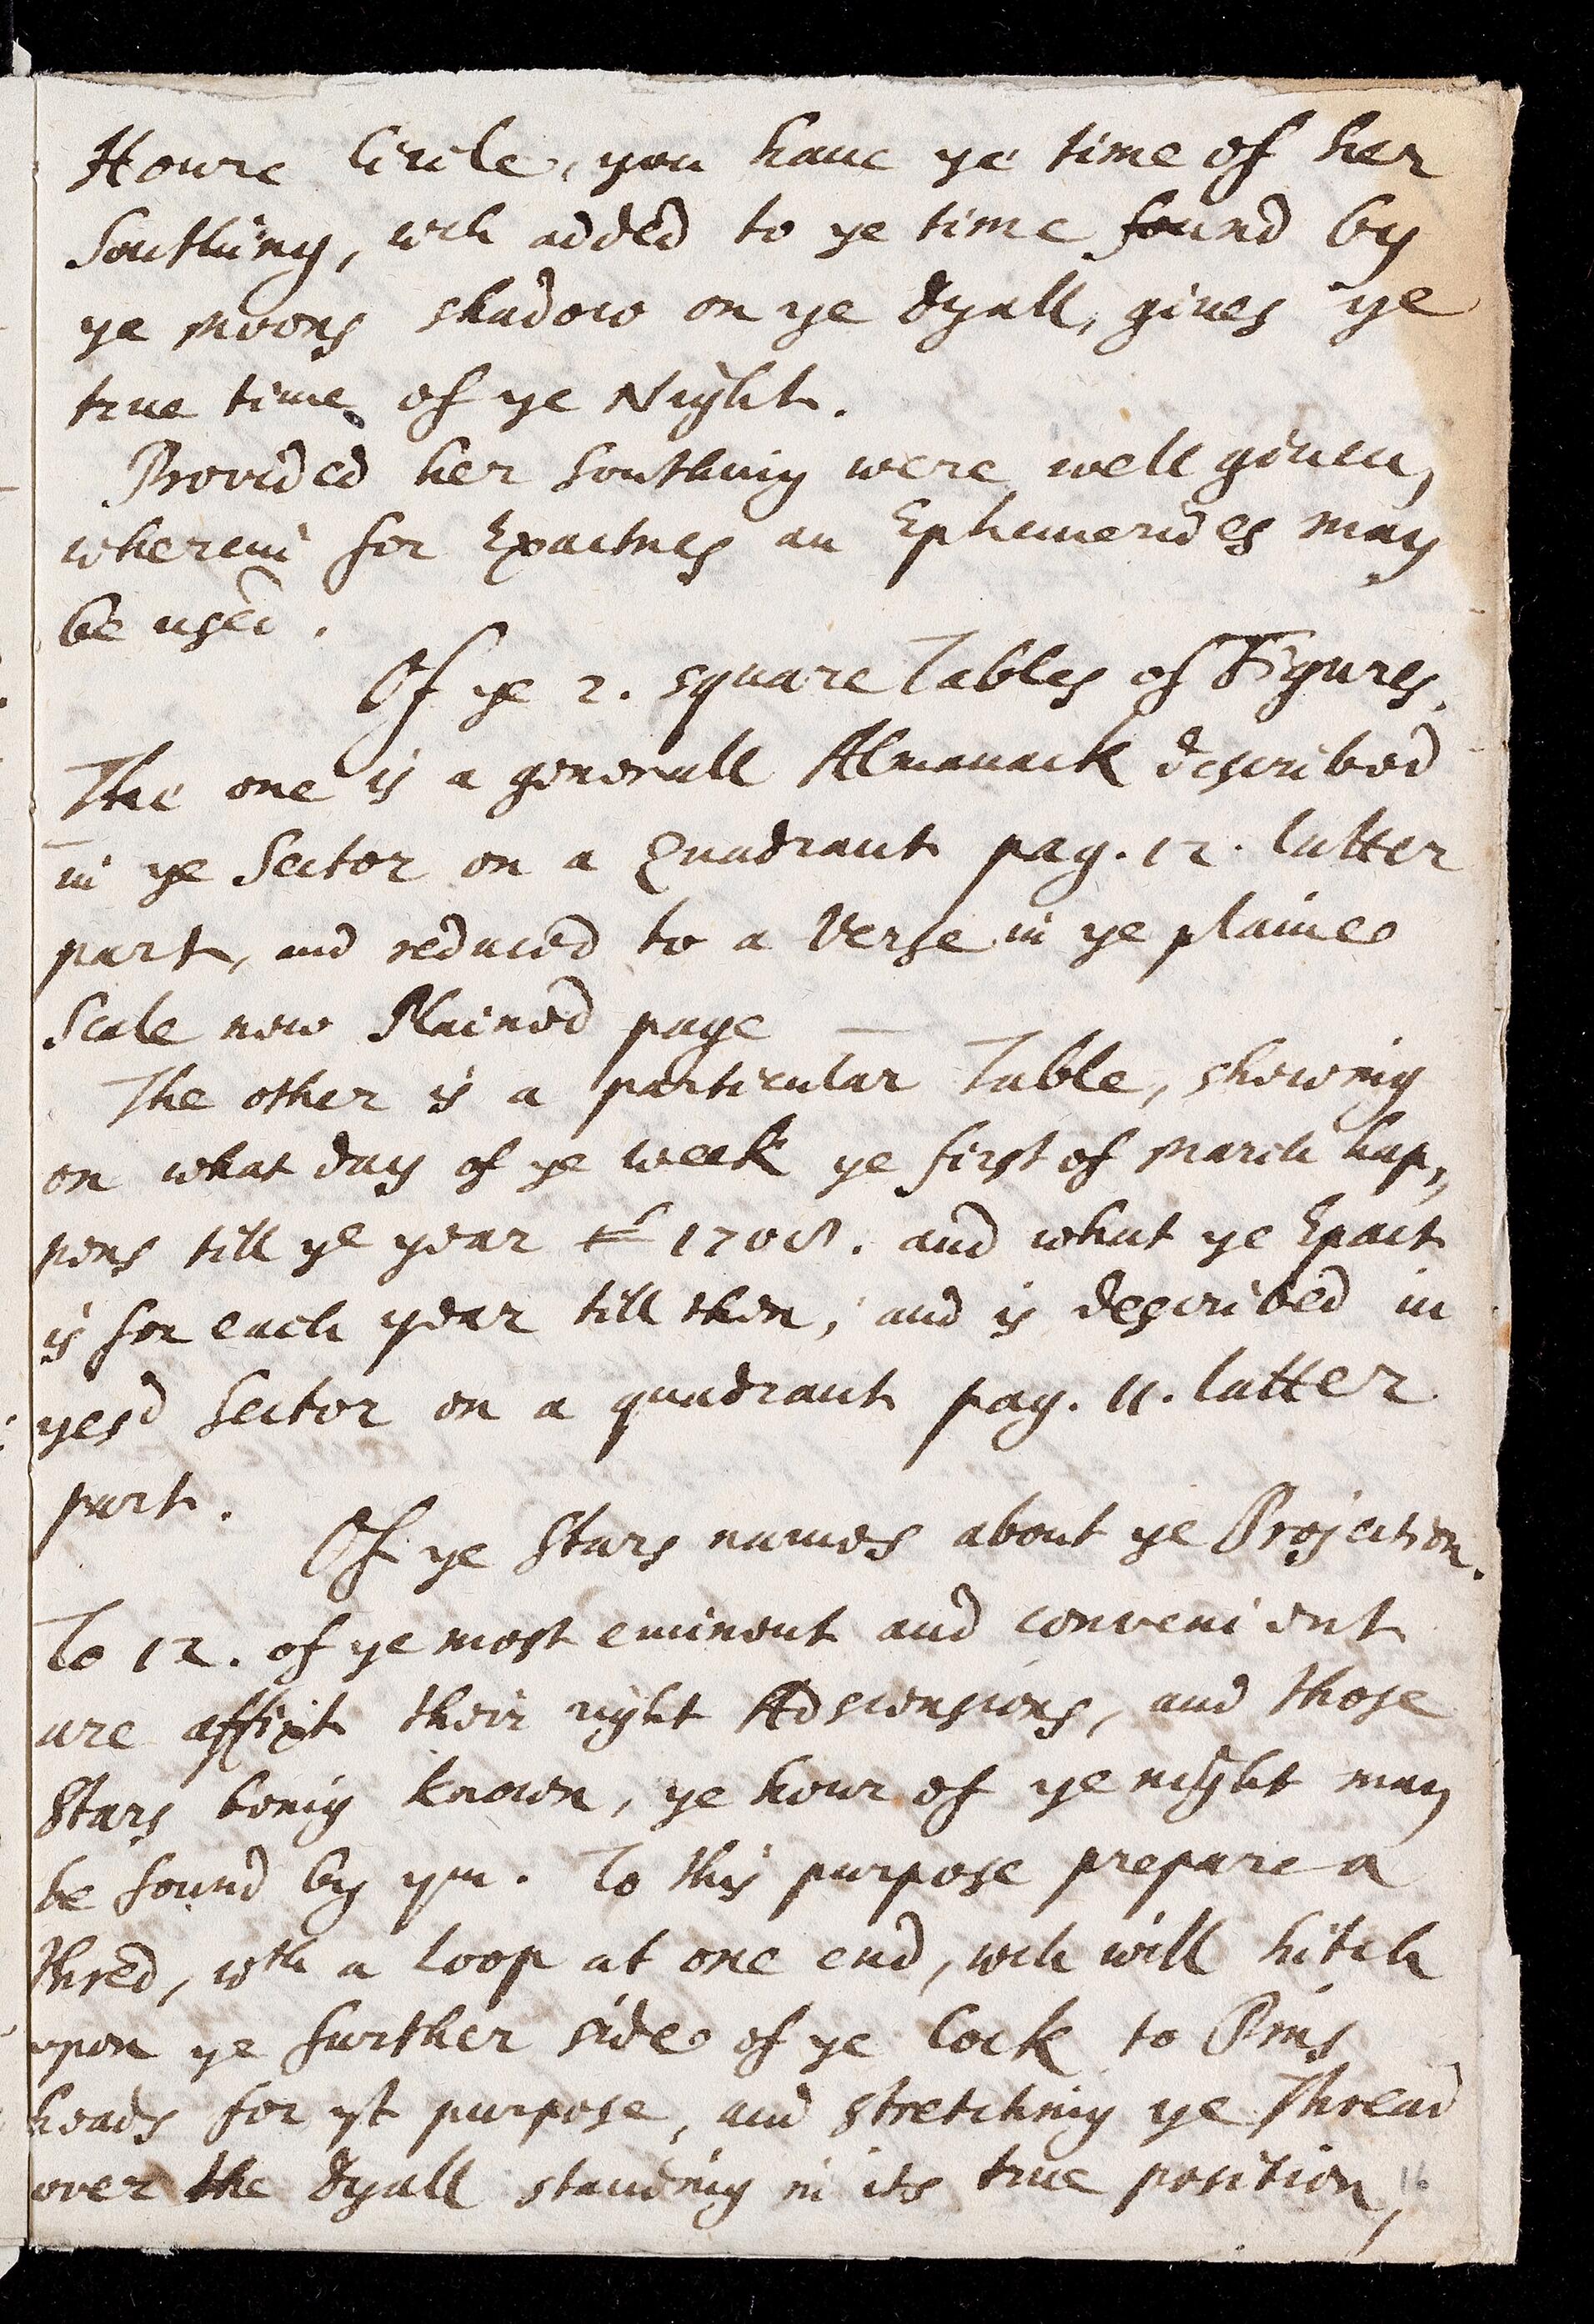 Houre Circle, you have ye time of her
Southing, wch added to ye time found by
ye moons shadow on ye dyall, gives ye
true time of ye Night.
Provided her Southing were well given,
wherein for Exactnes an Ephemerides may
be used.
Of ye 2. square Tables of Figures.
The one is a generall Almanack described
in ye Sector on a Quadrant pag. 12. latter
part, and reduced to a Verse in ye plaine
Scale new Plained page
The other is a particular Table, shewing
on what day of ye week ye first of March hap,,
pens till ye year 1700. and what ye Epact
is for each year till then, and is described in
yesd Sector on a quadrant pag. 11. latter
part.
Of ye Stars names about ye Projection.
To 12. of ye most eminent and convenient
are affixt their right Adscensions, and those
Stars being known, ye hour of ye night may
be found by ym. To this purpose prepare a
thred, wth a loop at one end, wch will hitch
upon ye further side of ye Cock to Pins
heads for yt purpose, and stretching ye Thread
over the dyall standing in its true position,
16